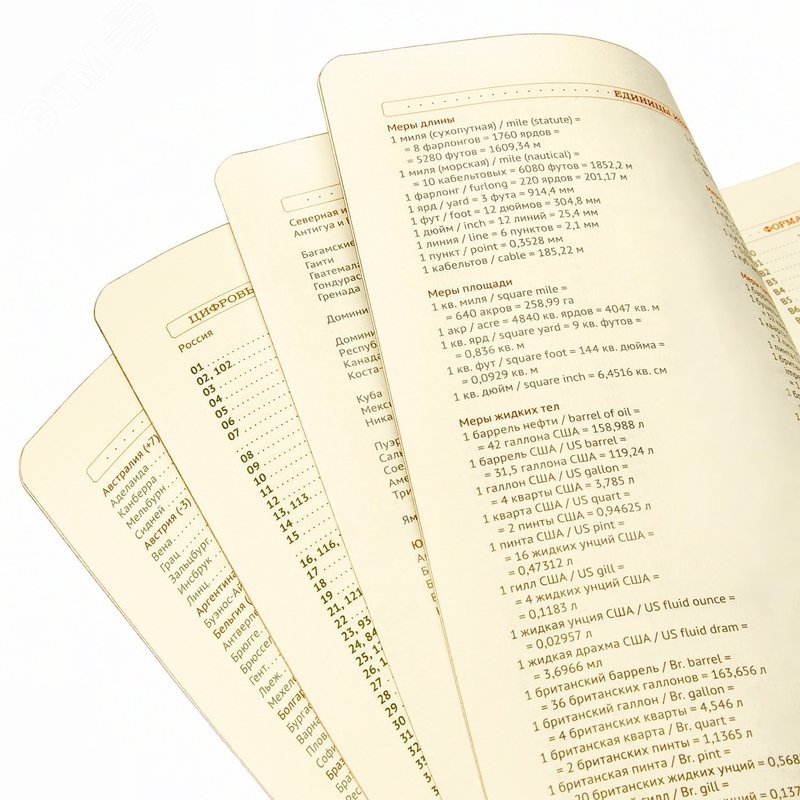 ЭТМ
Австралия (+7)
Аделаида
Канберра
Мельбурн
Сидней
Австрия (-3)
Вена
Грац
Зальцбург
Инсбрук
Линц
Аргентина
Буэнос-Ай
Бельгия (
Антверпе
Брюгге
Брюссел
Гент
Льеж
Мехеле
Болгар
Бургас
Варна
Плов
Софи
Браз
ЦИФРОВЫ
Россия
01
02, 102
03
04
05
06
07
08
09
10
11
12
13, 113
14
15
16, 116,
17
18
19
21, 121
22
23, 93
24, 84
25, 1
26, 1
27
28
29
30
31
32
33
Северная и
Антигуа и
Багамские
Гаити
Гватемала
Гондурас
Гренада
Домини
Домини
Респуб
Канада
Коста-
Куба
Мекс
Ника
Пуэр
Саль
Сое
Аме
Три
Ям
Ю
ЕДИНИЦЫ
Меры длины
1 миля (сухопутная) / mile (statute) =
= 8 фарлонгов = 1760 ярдов =
= 5280 футов = 1609,34 м
1 миля (морская) / mile (nautical) =
= 10 кабельтовых = 6080 футов = 1852,2 м
1 фарлонг / furlong = 220 ярдов = 201,17 м
1 ярд / yard = 3 фута = 914,4 мм
1 фут / foot = 12 дюймов = 304,8 мм
1 дюйм / inch = 12 линий = 25,4 мм
1 линия / line = 6 пунктов = 2,1 мм
1 пункт / point = 0,3528 мм
1 кабельтов / cable = 185,22 м
Меры площади
1 кв. миля / square mile =
= 640 акров = 258,99 га
1 акр / acre = 4840 кв. ярдов = 4047 кв. м
1 кв. ярд / square yard = 9 кв. футов =
= 0,836 кв. м
1 кв. фут / square foot = 144 кв. дюйма =
= 0,0929 кв. м
1 кв. дюйм / square inch = 6,4516 кв. см
Меры жидких тел
1 баррель нефти / barrel of oil =
= 42 галлона США = 158,988 л
1 баррель США / US barrel =
= 31,5 галлона США = 119,24 л
1 галлон США / US gallon =
= 4 кварты США = 3,785 л
1 кварта США / US quart =
= 2 пинты США = 0,94625 л
1 пинта США / US pint =
= 16 жидких унций США =
= 0,47312 л
1 гилл США / US gill =
= 4 жидких унций США =
= 0,1183 л
1 жидкая унция США / US fluid ounce =
= 0,02957 л
1 жидкая драхма США / US fluid dram =
= 3,6966 мл
1 британский баррель / Br. barrel =
= 36 британских галлонов = 163,656 л
1 британский галлон / Br. gallon =
= 4 британских кварты = 4,546 л
1 британская кварта / Br. quart =
= 2 британских пинты = 1,1365 л
1 британская пинта / Br. pint =
= 20 британских жидких унций = 0,568
гилл / Br. gill =
ФОРМА
B2
B3
B4
B5
B6